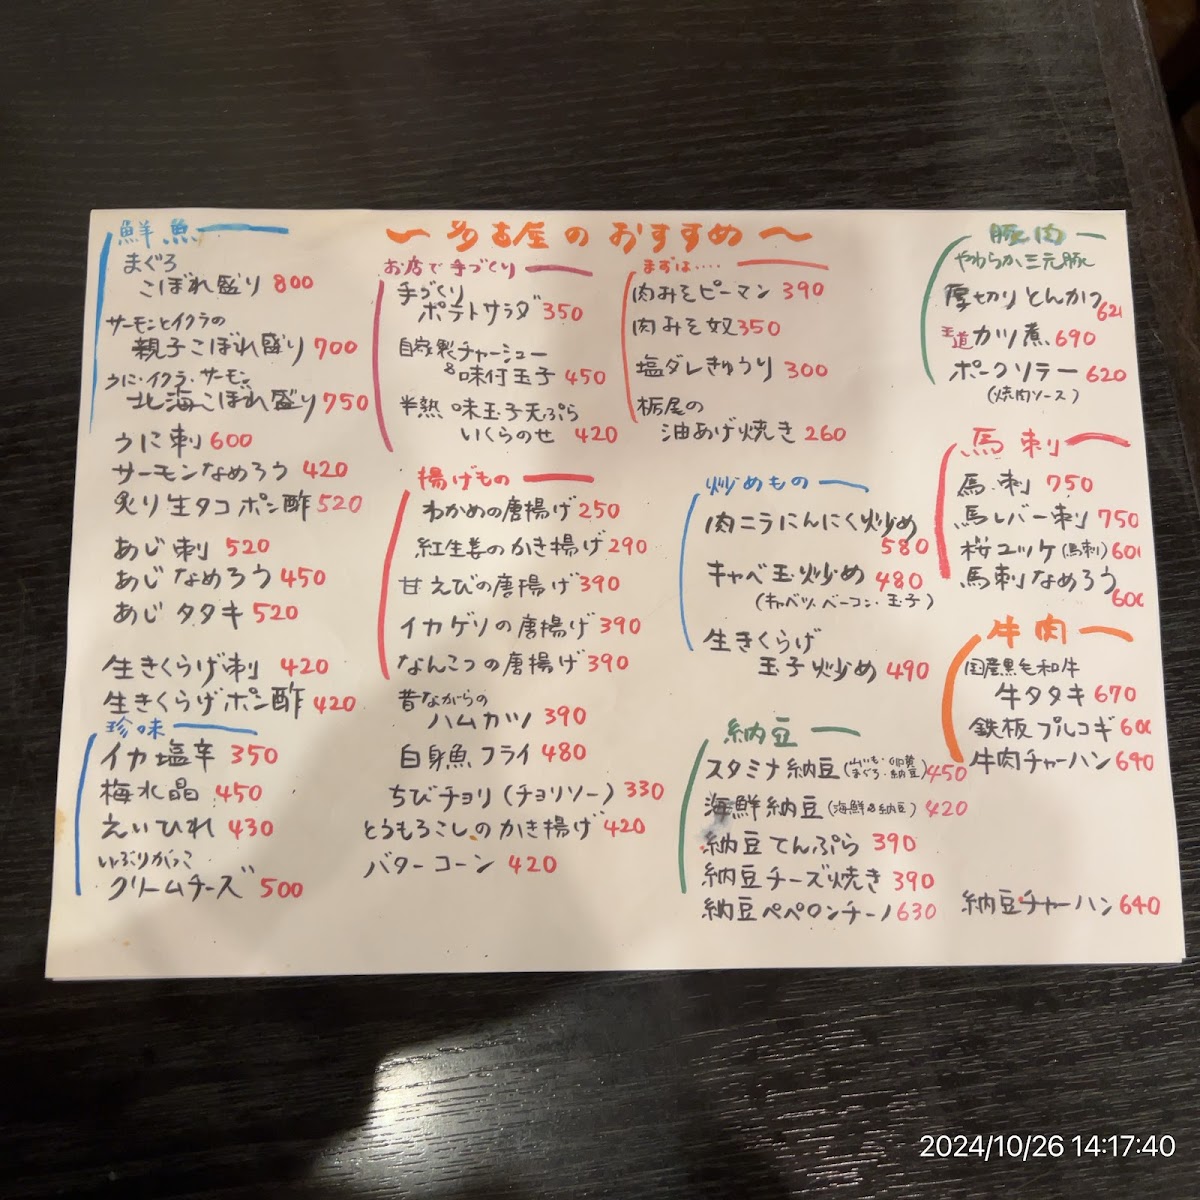 〜多古屋のおすすめ〜
鮮魚
まぐろ
こぼれ盛り 800
サーモンとイクラの
親子こぼれ盛り 700
うに・イクラ・サーモン
北海こぼれ盛り 750
うに刺 600
サーモンなめろう 420
炙り生タコポン酢 520
あじ刺 520
あじなめろう 450
あじタタキ 520
生きくらげ刺 420
生きくらげポン酢 420
珍味
イカ塩辛 350
梅水晶 450
えいひれ 430
いぶりがっこ
クリームチーズ 500
お店で手づくり
手づくり
ポテトサラダ 350
自家製チャーシュー
&味付玉子 450
半熟 味玉子天ぷら
いくらのせ 420
揚げもの
わかめの唐揚げ 250
紅生姜のかき揚げ 290
甘えびの唐揚げ 390
イカゲソの唐揚げ 390
なんこつの唐揚げ 390
昔ながらの
ハムカツ 390
白身魚フライ 480
ちびチョリ(チョリソー) 330
とうもろこしのかき揚げ 420
バターコーン 420
まずは‥‥
肉みそピーマン 390
肉みそ奴 350
塩ダレきゅうり 300
栃尾の
油あげ焼き 260
炒めもの
肉ニラにんにく炒め
580
キャベ玉炒め 480
(キャベツ・ベーコン・玉子)
生きくらげ
玉子炒め 490
納豆
スタミナ納豆(山いも・卵黄 まぐろ・納豆) 450
海鮮納豆(海鮮&納豆) 420
納豆てんぷら 390
納豆チーズ焼き 390
納豆ペペロンチーノ 630
豚肉
やわらか三元豚
厚切りとんかつ
620
王道カツ煮 690
ポークソテー 620
(焼肉ソース)
馬刺
馬刺 750
馬レバー刺 750
桜ユッケ(馬刺) 600
馬刺なめろう
600
牛肉
国産黒毛和牛
牛タタキ 670
鉄板プルコギ 600
牛肉チャーハン 690
納豆チャーハン 640
2024/10/26 14:17:40